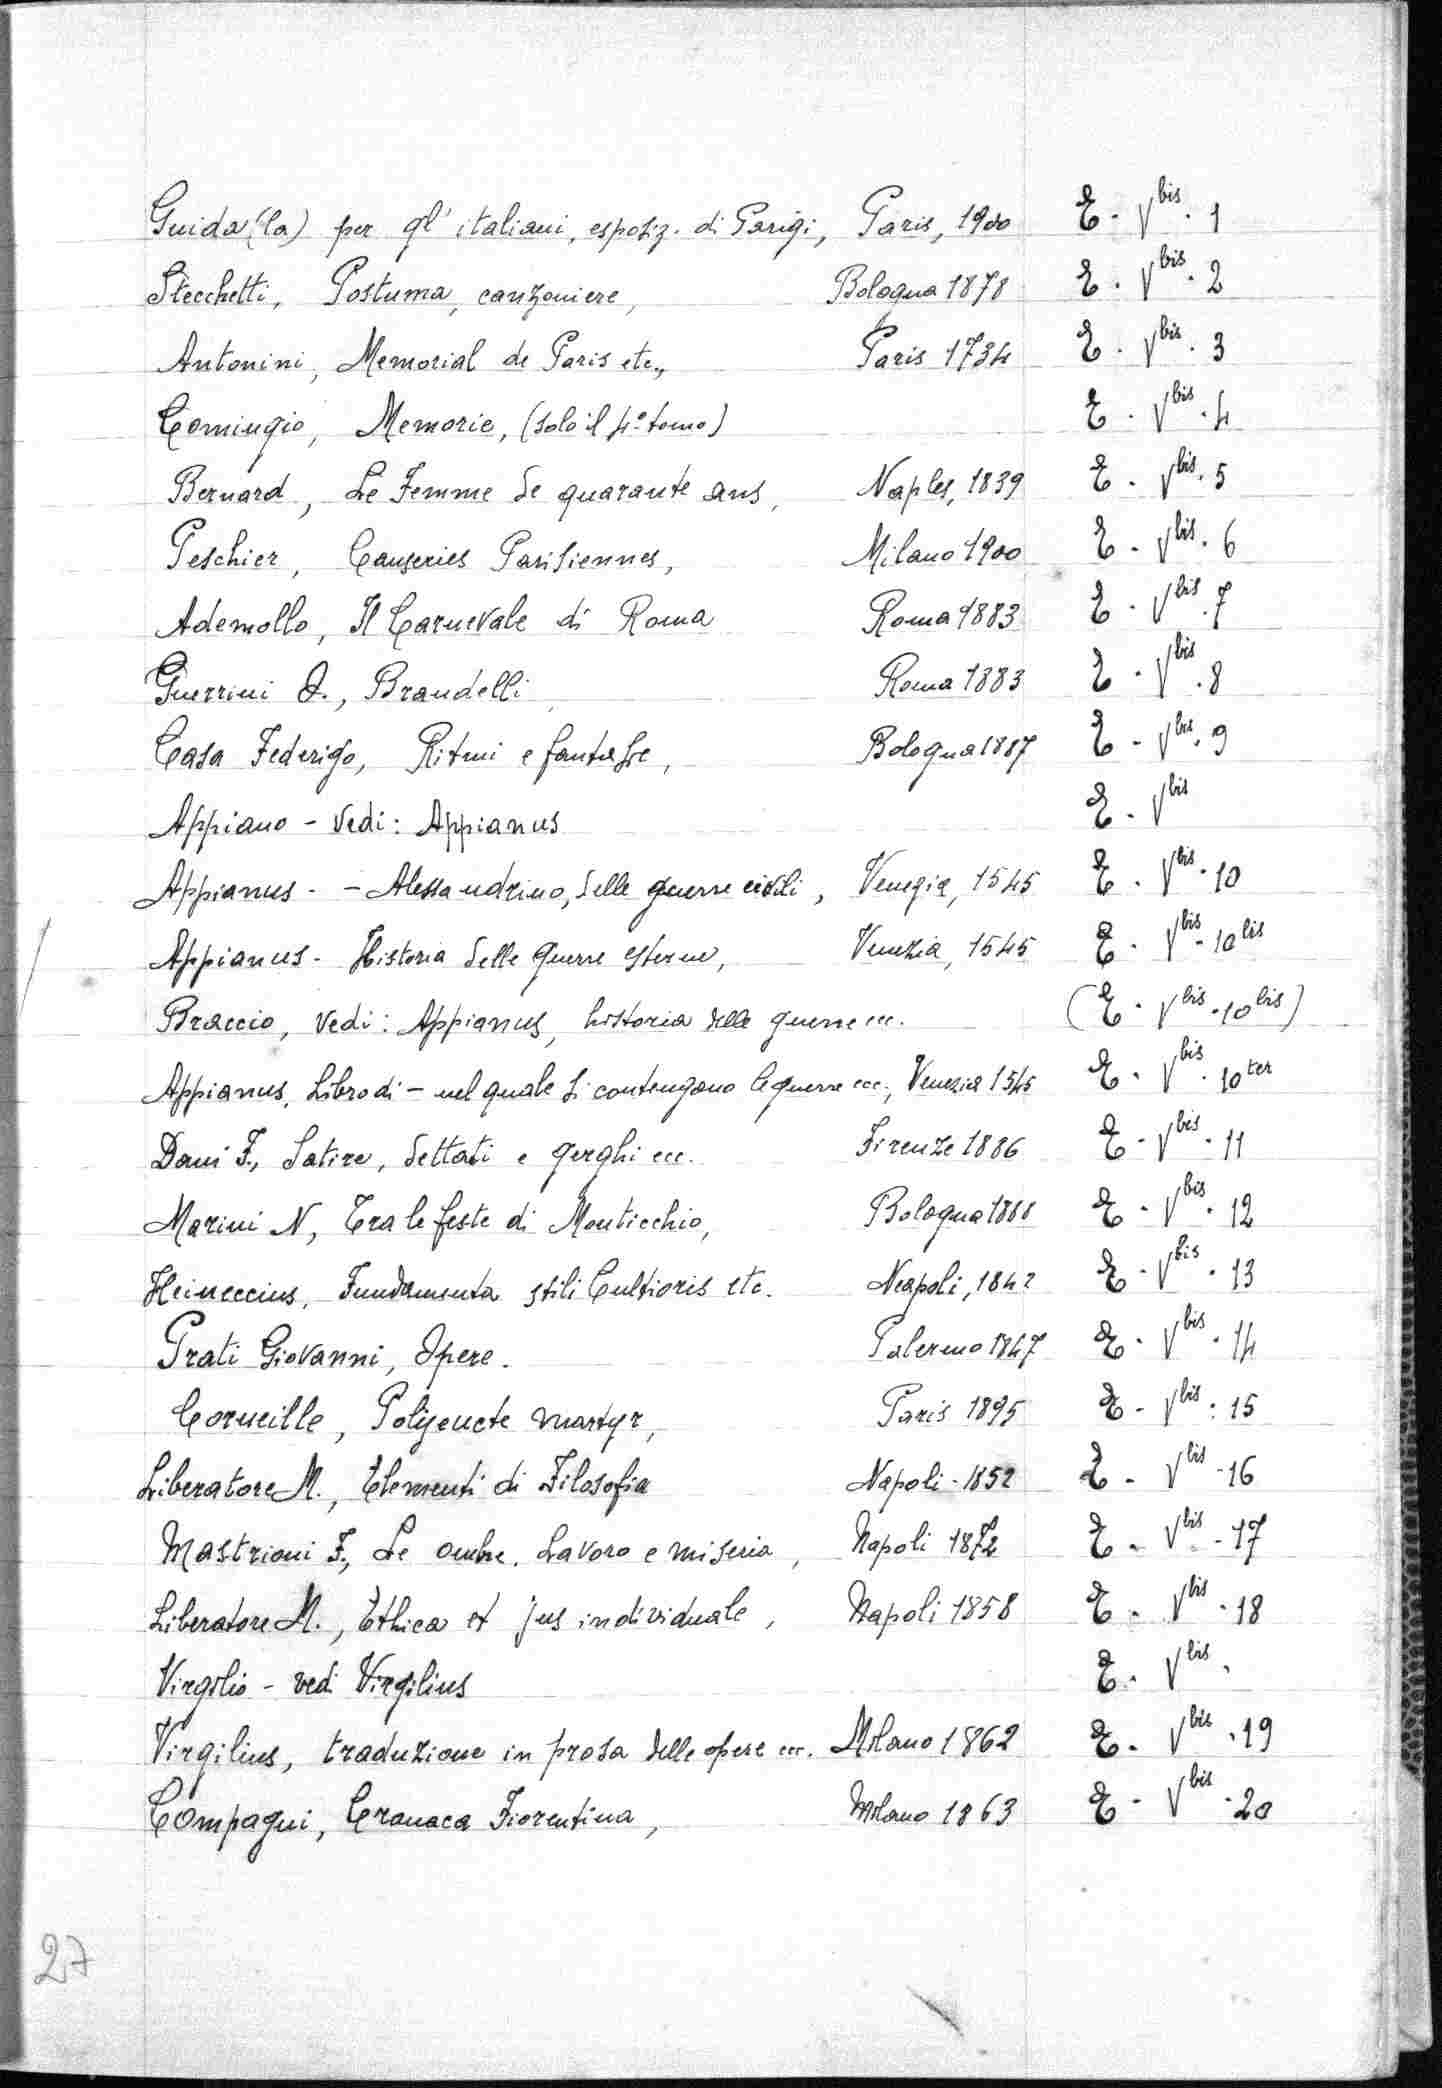 Guida (la) per gl' italiani, esposiz. di Parigi, Paris, 1900 E. Vbis. 1
Stecchetti, Postuma, canzoniere, Bologna 1878 E. Vbis. 2
Antonini, Memorial de Paris etc., Paris 1734 E. Vbis. 3
Comingio, Memorie, (solo il 4º tomo) E. Vbis. 4
Bernard, Le Femme de quarante ans, Naples, 1839 E. Vbis. 5
Peschier, Causeries Parisiennes, Milano 1900 E. Vbis. 6
Ademollo, Il Carnevale di Roma Roma 1883 E. Vbis. 7
Guerrini O., Brandelli Roma 1883 E. Vbis. 8
Casa Federigo, Ritmi e fantasie, Bologna 1887 E. Vbis. 9
Appiano - vedi: Appianus E. Vbis
Appianus - - Alessandrino, delle guerre civili, Venegia, 1545 E. Vbis. 10
Appianus - Historia delle guerre esterne, Venezia, 1545 E. Vbis. 10bis
Braccio, vedi: Appianus, historia delle guerre ecc. (E. Vbis. 10bis)
Appianus, Libro di - nel quale si contengono le guerre ecc., Venezia 1545 E. Vbis. 10ter
Dani F., Satire, dettati e gerghi ecc. Firenze 1886 E. Vbis. 11
Marini N, Tra le feste di Monticchio, Bologna E. Vbis. 12
Heineccius, Fundamenta stili Cultioris etc. Neapoli, 1842 E. Vbis. 13
Prati Giovanni, Opere. Palermo 1847 E. Vbis. 14
Corneille, Polyeucte martyr, Paris 1895 E. Vbis. 15
Liberatore M., Elementi di Filosofia Napoli - 1852 E. Vbis - 16
Mastrioni F., Le ombre. Lavoro e miseria, Napoli 1872 E. Vbis - 17
Liberatore M., Ethica et jus individuale, Napoli 1858 E. Vbis. 18
Virgilio - vedi Virgilius E. Vbis.
Virgilius, traduzione in prosa delle opere ecc. Milano 1862 E. Vbis. 19
Compagni, Cranaca Fiorentina, Milano 1863 E. Vbis. 20
27